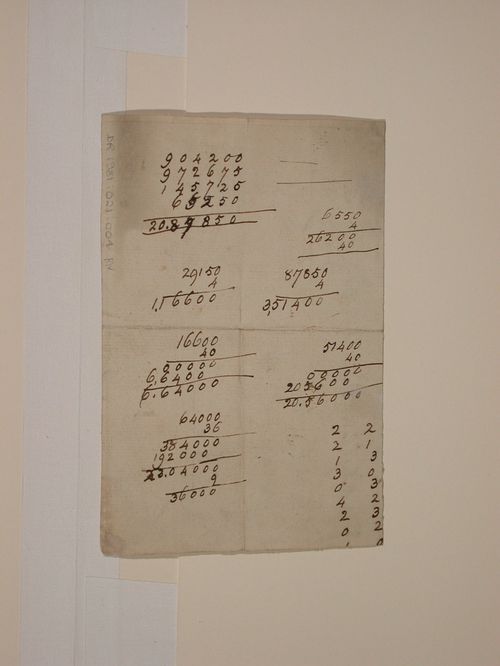 904200
972675
145725
65250
20.87850
6550
4
26200
40
29150
4
1,16600
87850
4
3,51400
16600
40
00000
6,6400
6.64000
51400
40
00000
205600
20.56000
64000
36
384000
192000
23.04000
9
36000
2 2
2 1
1 3
3 0
0 3
4 2
2 3
0 2
DR 1981:021:004 RV